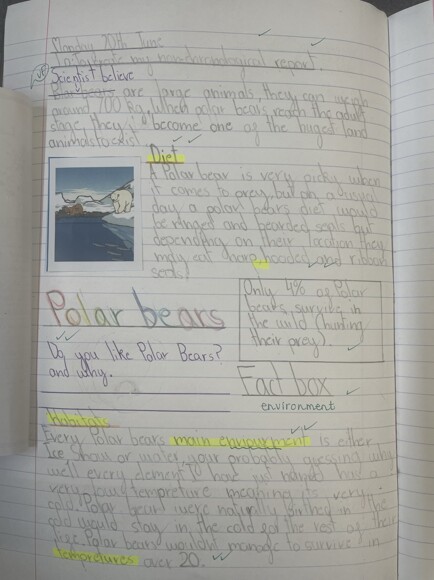 Monday 20th June
To write my non-chronological report.
VF
Scientist believe
Polar bears are large animals, they can weigh
around 700 kg, when polar bears reach the adult
stage, they become one of the hugest land
animals to exist.
Diet
A Polar bear is very picky when
it comes to prey, but on a usual
day a polar bears diet would
be ringed and bearded seals but
depending on their location they
may eat harp, hooded and ribbon
seals!
Polar bears
Only 4% of Polar
bears survive in
the wild (hunting
their prey).
Do you like Polar Bears?
and why.
Fact box
environment
Habitats
Every Polar bears main is either
Ice Snow or water, your probably guessing why
well every element I have just named has a
very low tempreture meaning its very
cold. Polar bears were naturally birthed in this
cold would stay in the cold for the rest of their
life. Polar bears wouldn't manage to survive in
tempretures over 20.